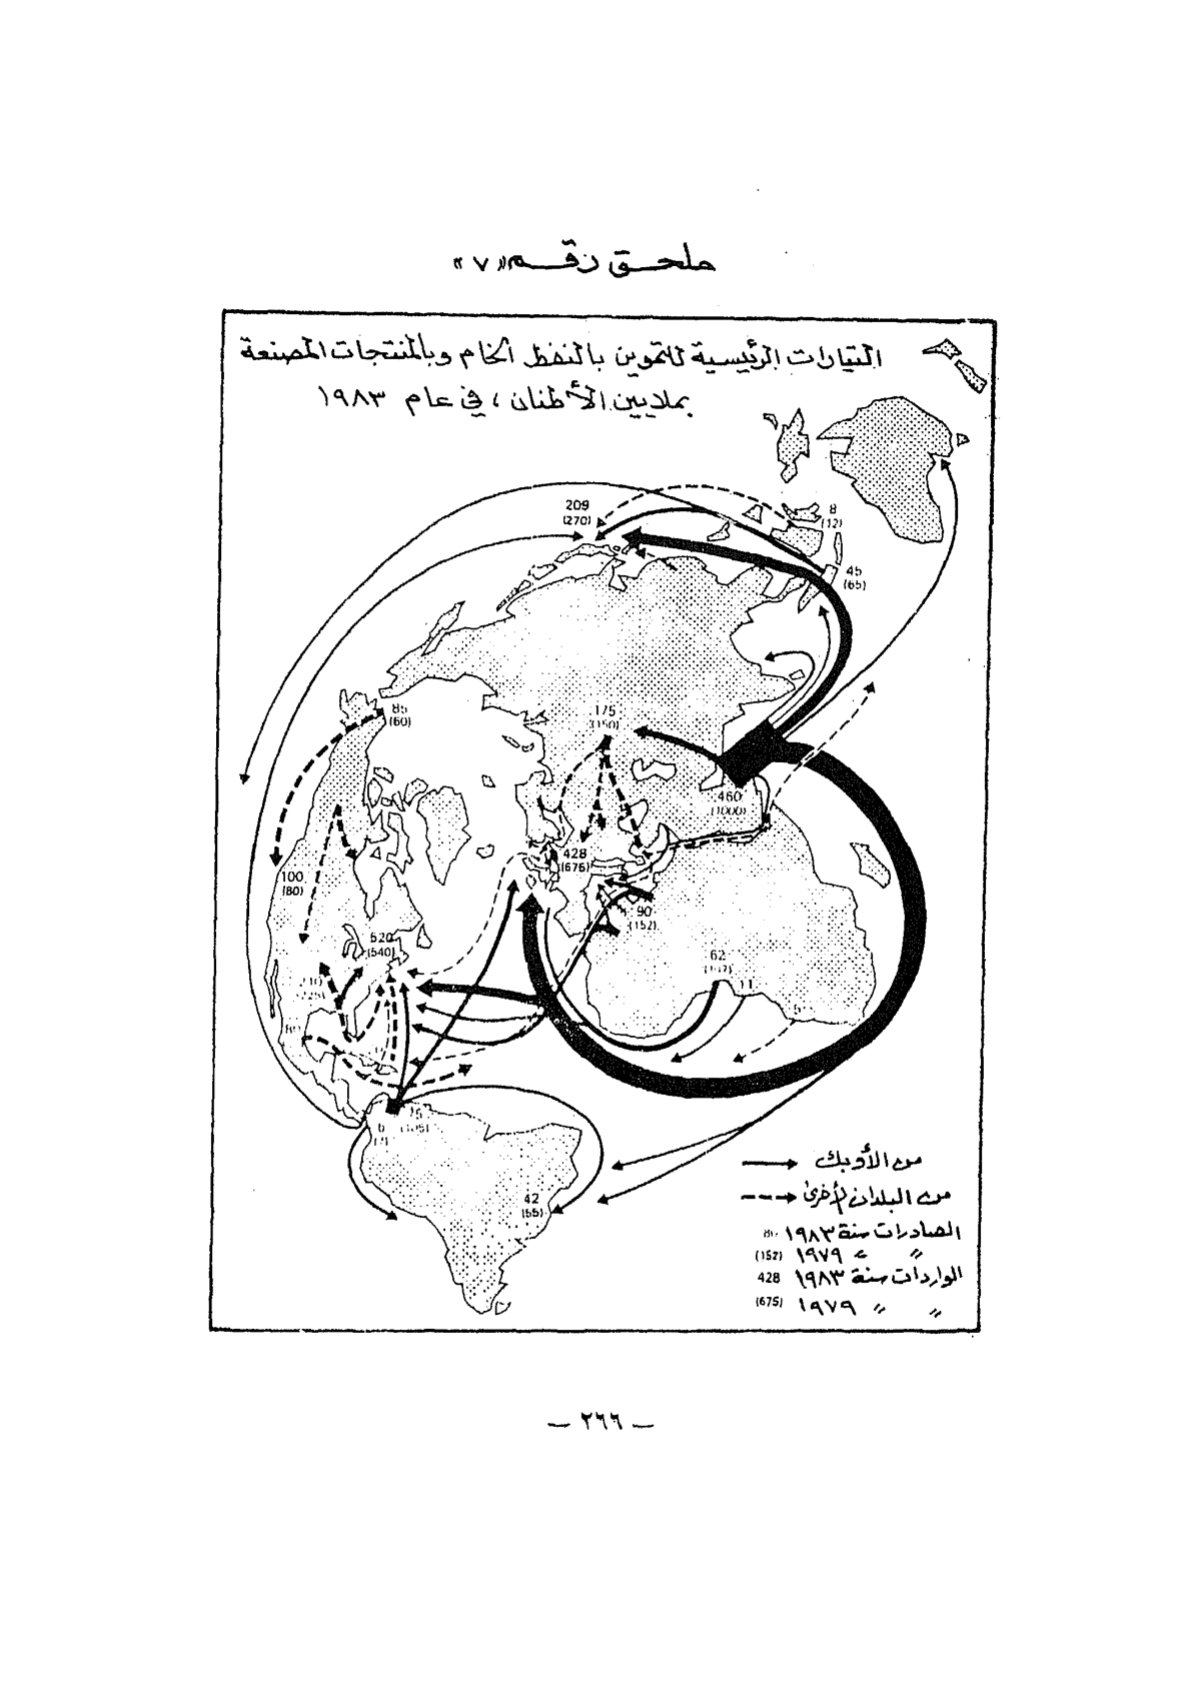 ملحق رقم «٧»
التيارات الرئيسية للتموين بالنفط الخام وبالمنتجات المصنعة
بملايين الأطنان، في عام ١٩٨٣
209
(270)
8
(12)
45
(65)
85
(60)
175
460
(1000)
428
(676)
100
(80)
90
(152)
520
(540)
62
42
(55)
من الأوبك
من البلدان الأخرى
الصادرات سنة ١٩٨٣
〃 〃 ١٩٧٩ (152)
الواردات سنة ١٩٨٣ 428
〃 〃 ١٩٧٩ (675)
— ٢٦٦ —